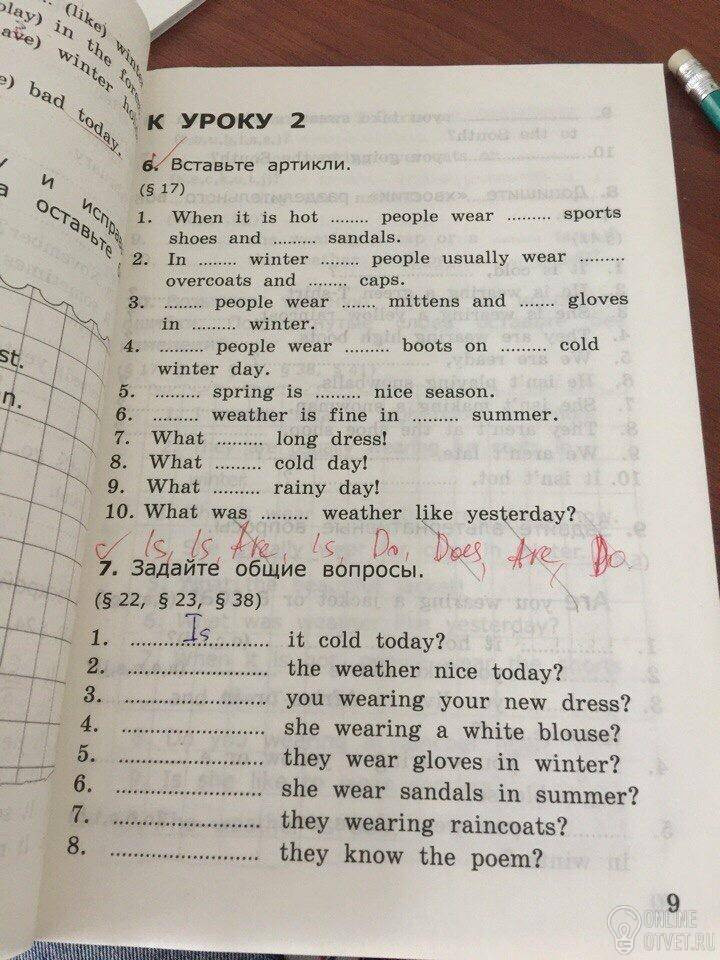 (like) winte
play) in the fore
ave) winter ho
e) bad today.
у и испра
а оставьте
st.
n.
К УРОКУ 2
6. Вставьте артикли.
(§ 17)
1. When it is hot ........ people wear ......... sports
shoes and ......... sandals.
2. In ........ winter ........ people usually wear .........
overcoats and ........ caps.
3. ........ people wear ........ mittens and ....... gloves
in ......... winter.
4. ......... people wear ......... boots on ......... cold
winter day.
5. ......... spring is ......... nice season.
6. ......... weather is fine in ......... summer.
7. What ......... long dress!
8. What ......... cold day!
9. What ......... rainy day!
10. What was ......... weather like yesterday?
Is, Is, Are, Is, Do, Does, Are, Do.
7. Задайте общие вопросы.
(§ 22, § 23, § 38)
1. ........Is........ it cold today?
2. ....................... the weather nice today?
3. ....................... you wearing your new dress?
4. ....................... she wearing a white blouse?
5. ....................... they wear gloves in winter?
6. ....................... she wear sandals in summer?
7. ....................... they wearing raincoats?
8. ....................... they know the poem?
9
ONLINE
OTVET.RU